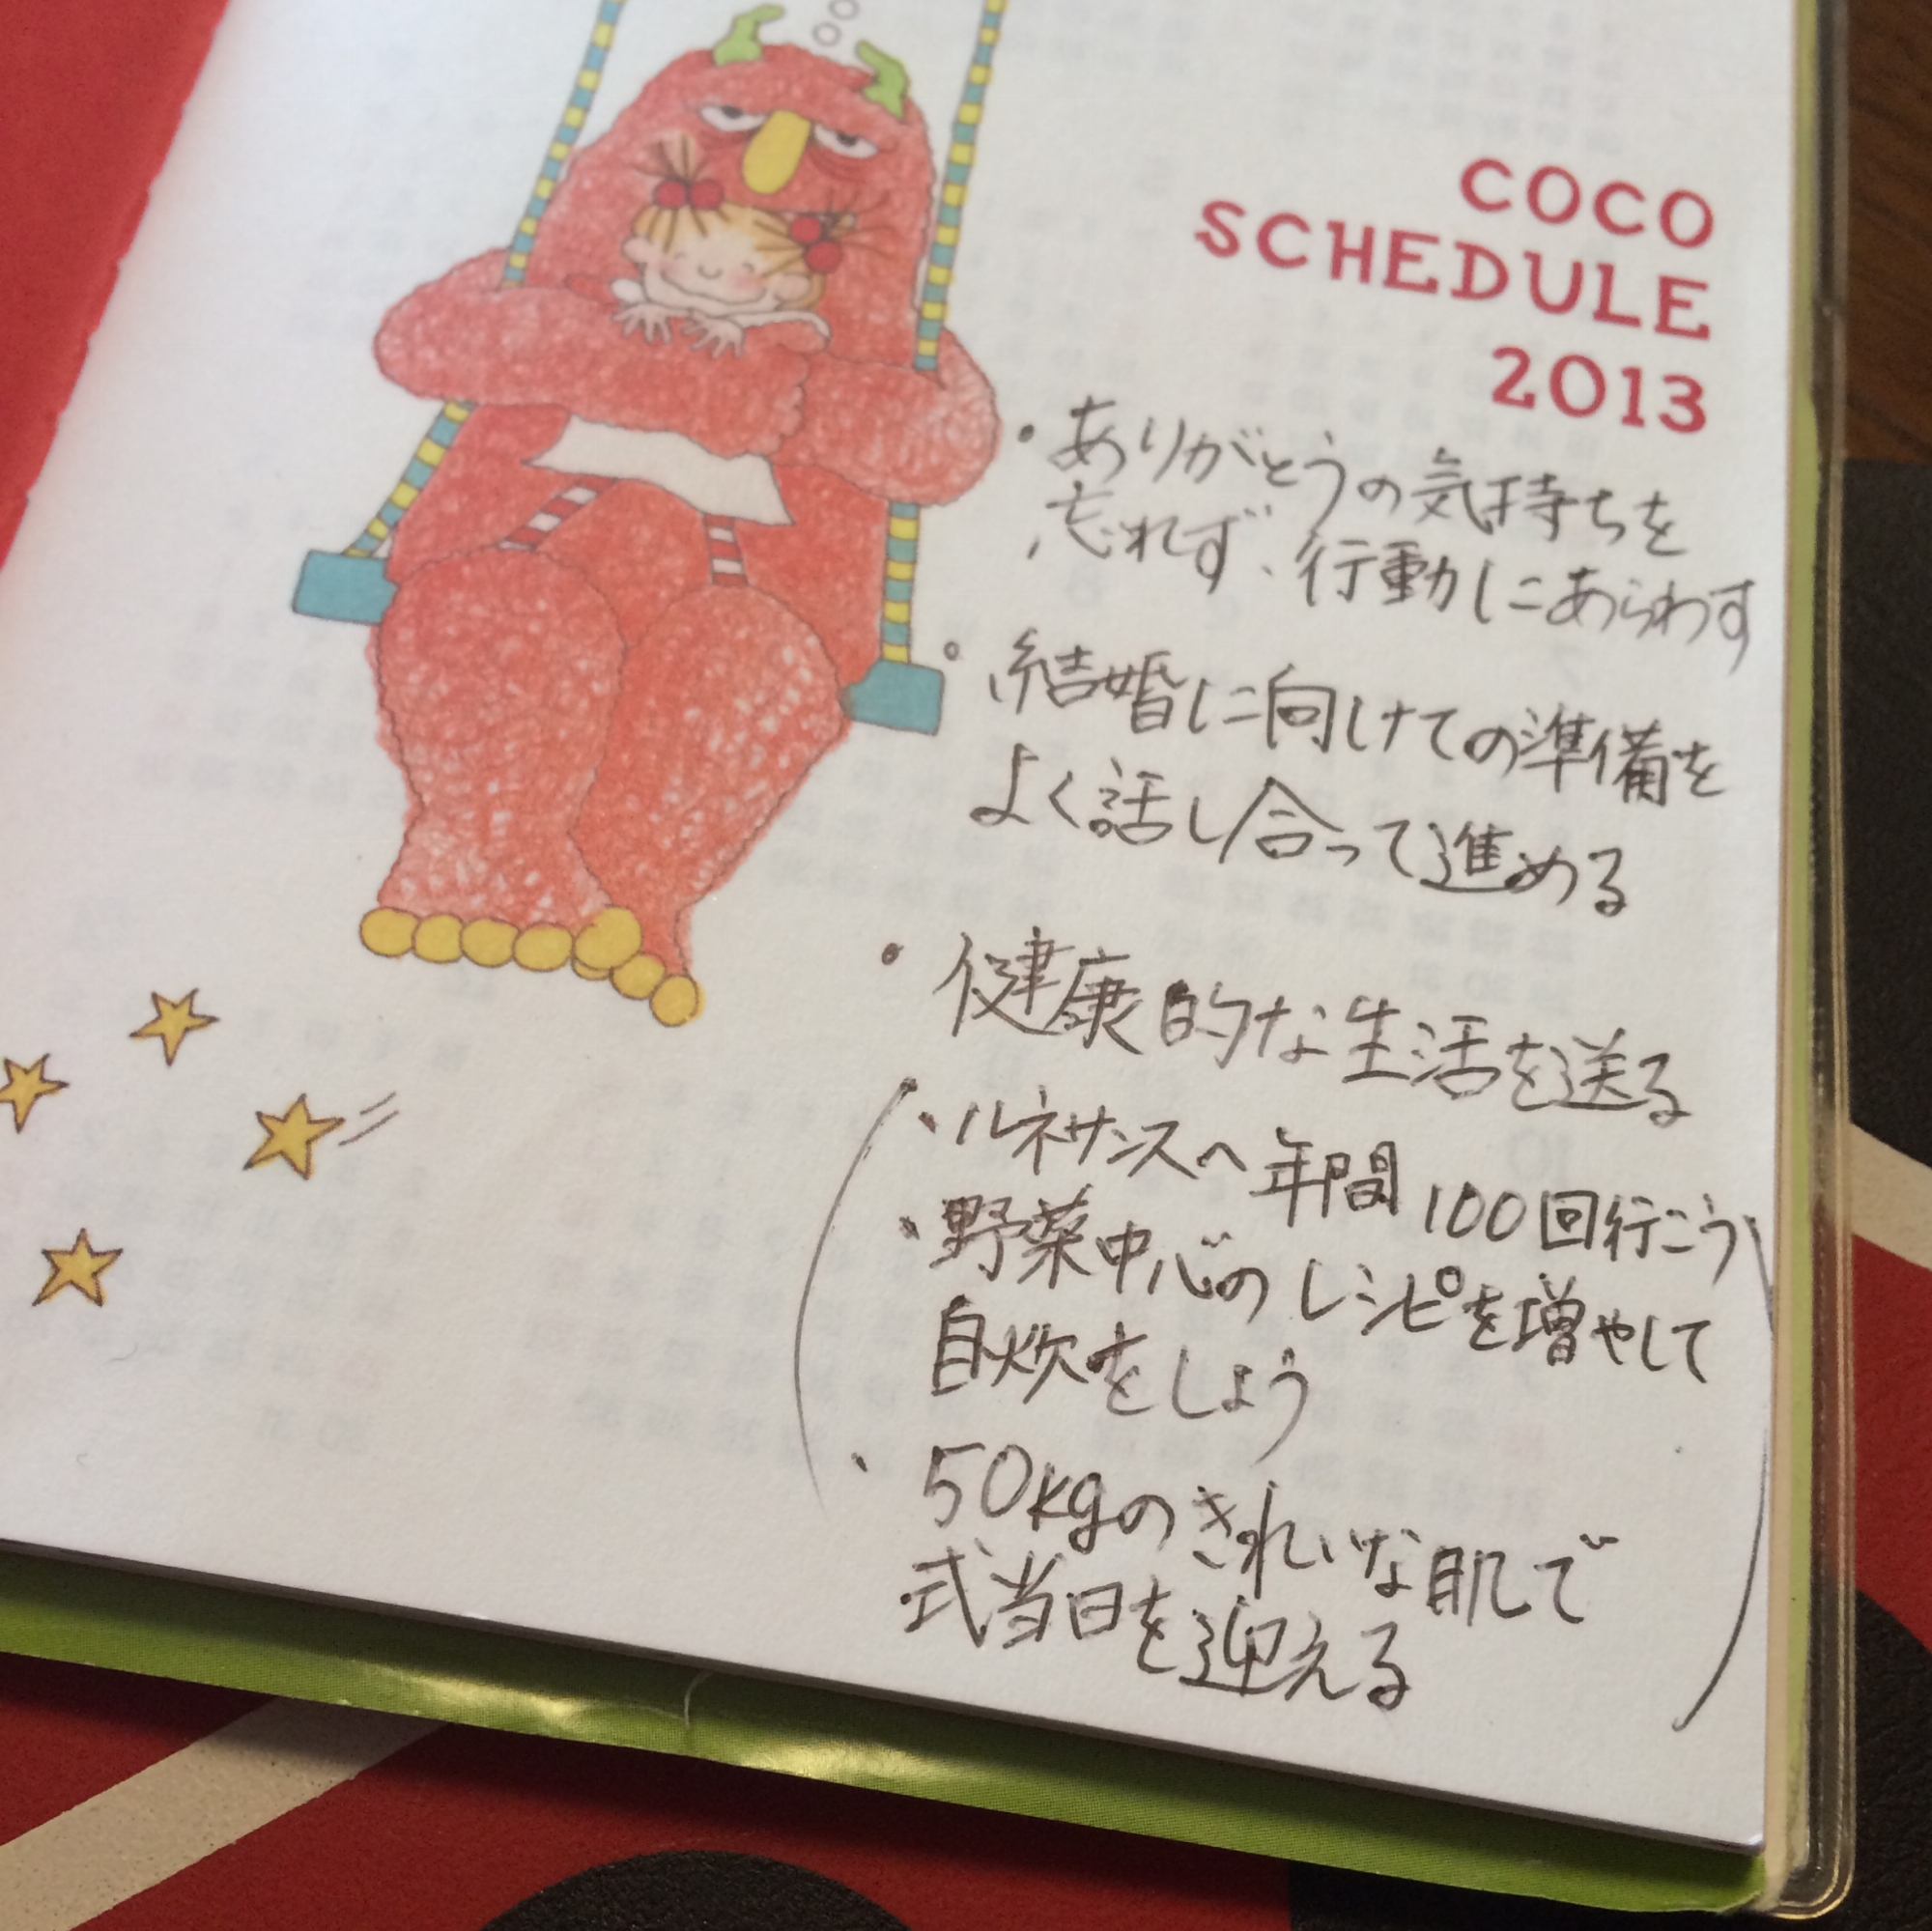 COCO
SCHEDULE
2013
・ありがとうの気持ちを
忘れず、行動にあらわす
・結婚に向けての準備を
よく話し合って進める
・健康的な生活を送る
・ルネサンスへ年間100回行こう
・野菜中心のレシピを増やして
自炊をしよう
・50kgのきれいな肌で
式当日を迎える